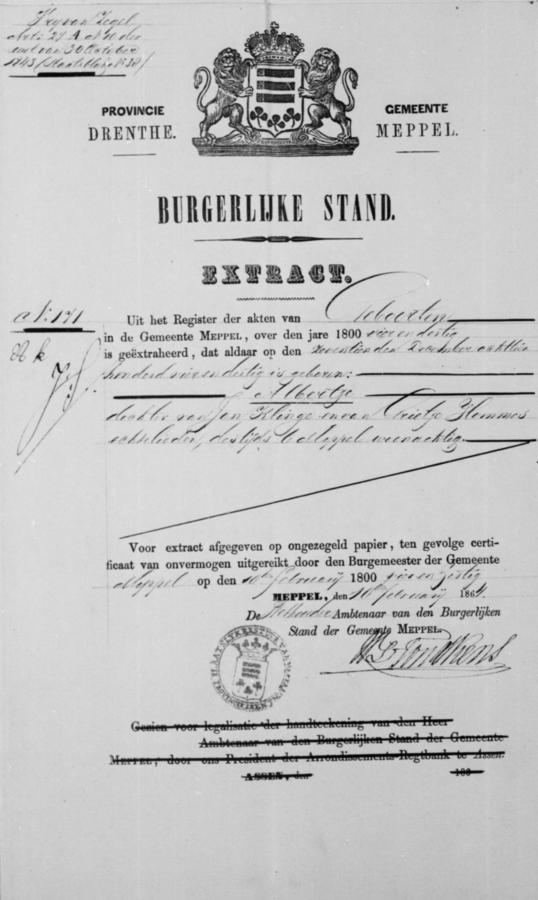 Vrij van Zegel
Art: 27 A No 10 der
wet van 3 October
1843 (Staatsblad No 38)
PROVINCIE
DRENTHE.
GEMEENTE
MEPPEL.
BURGERLIJKE STAND.
EXTRACT.
No 171
Uit het Register der akten van Geboorten
in de Gemeente MEPPEL, over den jare 1800 vier en dertig
is geëxtraheerd, dat aldaar op den zeventienden December achttien
honderd vier en dertig is geboren:
Albertje
dochter van Jan Klinge en van Grietje Hemmes
echtelieden, destijds te Meppel woonachtig.
Voor extract afgegeven op ongezegeld papier, ten gevolge certi-
ficaat van onvermogen uitgereikt door den Burgemeester der Gemeente
Meppel op den 10e February 1800 vier en zestig
MEPPEL, den 10 February 1864.
De Wethouder Ambtenaar van den Burgerlijken
Stand der Gemeente MEPPEL.
Gezien voor legalisatie der handteekening van den Heer
Ambtenaar van den Burgerlijken Stand der Gemeente
MEPPEL, door ons President der Arrondissements-Regtbank te Assen.
ASSEN, den 186